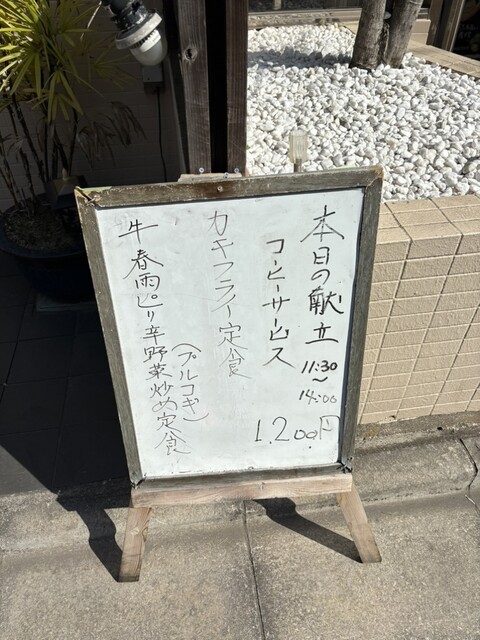 本日の献立
11:30
～
14:00
コーヒーサービス
1.200円
カキフライ定食
牛春雨ピリ辛野菜炒め定食
(プルコギ)